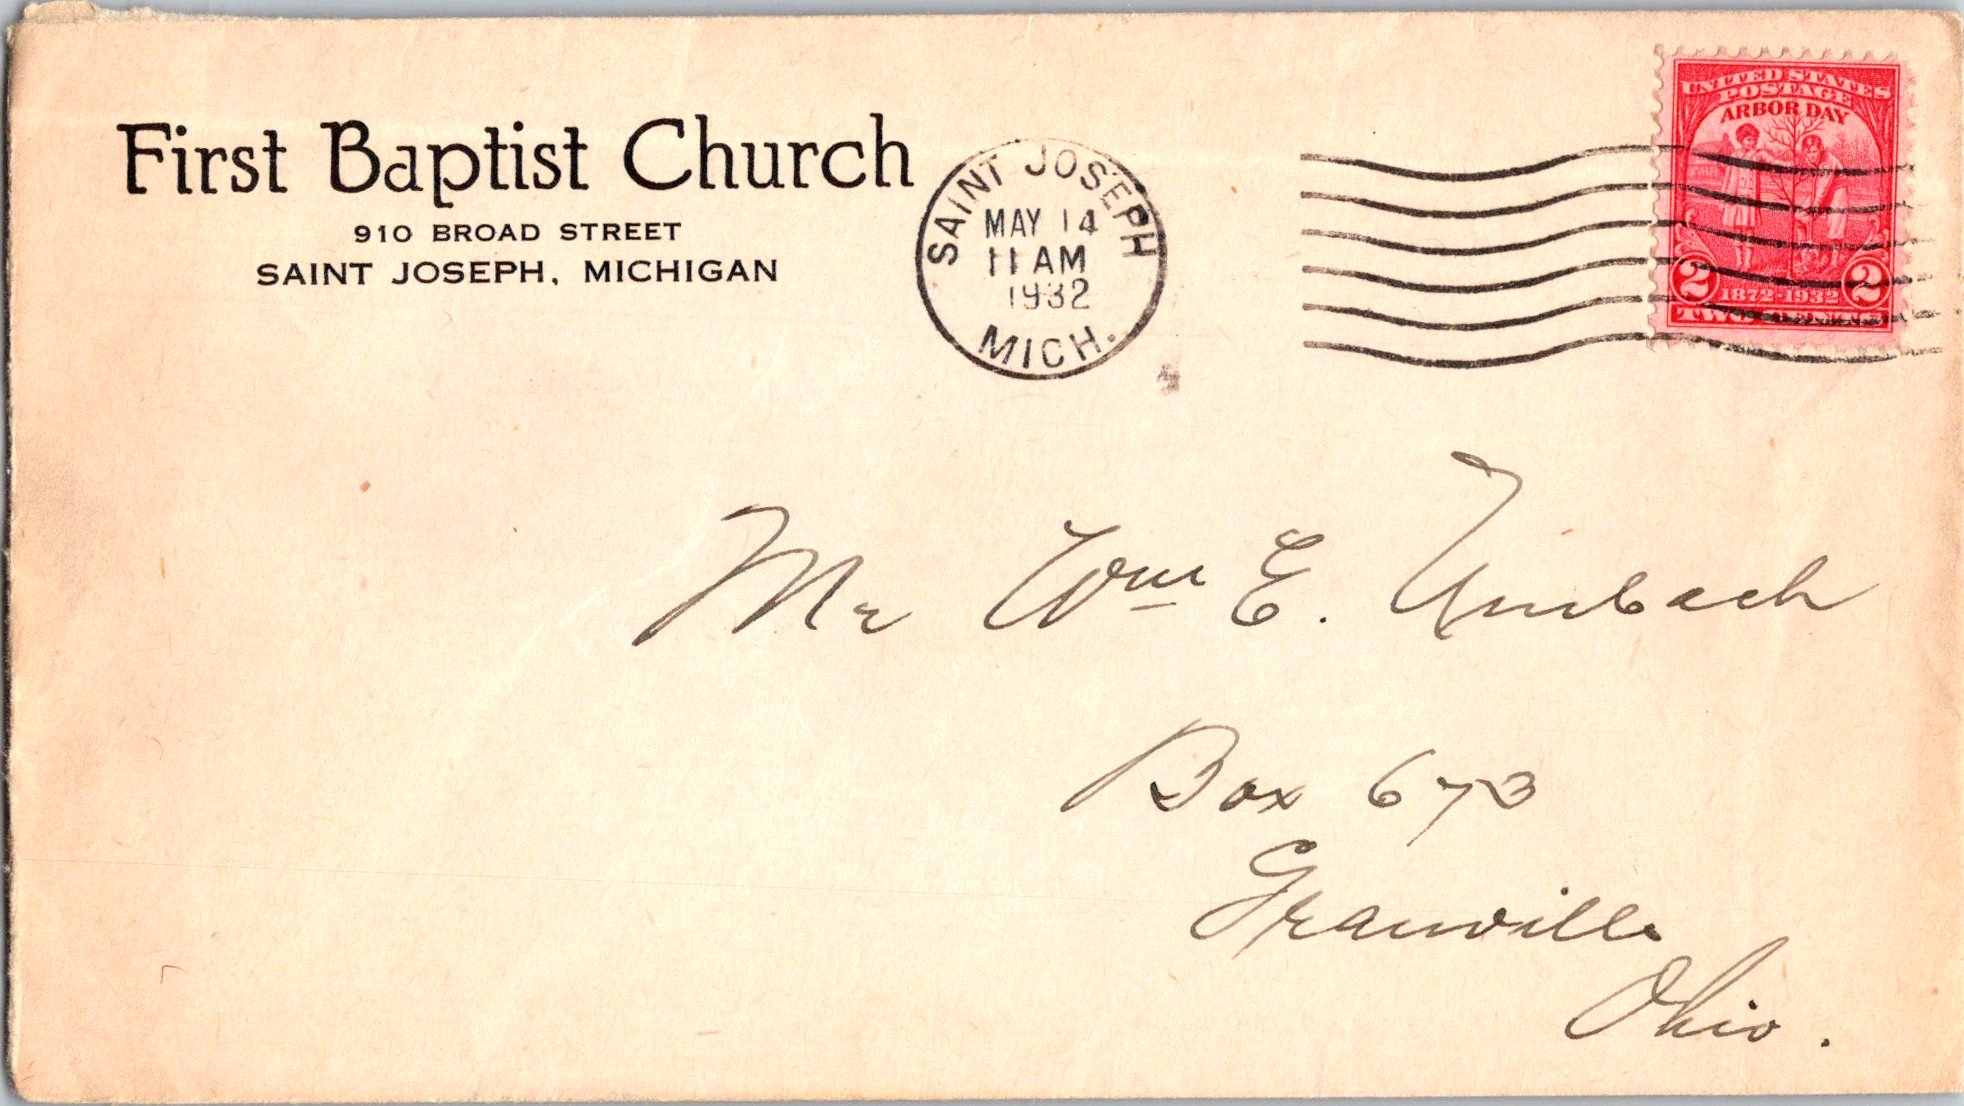 First Baptist Church
910 BROAD STREET
SAINT JOSEPH, MICHIGAN
SAINT JOSEPH
MAY 14
11 AM
1932
MICH.
UNITED STATES
POSTAGE
ARBOR DAY
2 1872-1932 2
TWO CENTS
Mr Wm E. Umbach
Box 673
Granville
Ohio.